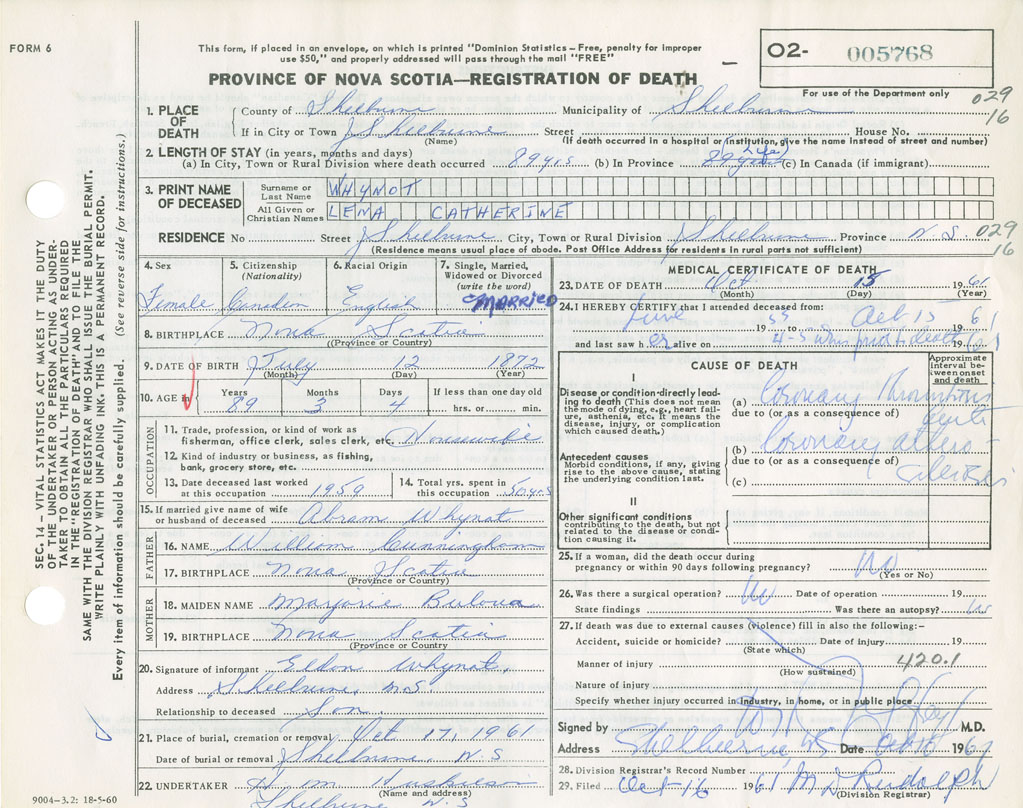 FORM 6
This form, if placed in an envelope, on which is printed "Dominion Statistics – Free, penalty for improper
use $50," and properly addressed will pass through the mail "FREE"
PROVINCE OF NOVA SCOTIA—REGISTRATION OF DEATH
O2- 005768
For use of the Department only
029
16
1. PLACE OF DEATH
County of Shelburne Municipality of Shelburne
If in City or Town Shelburne Street House No.
(Name) (If death occurred in a hospital or institution, give the name instead of street and number)
2. LENGTH OF STAY (in years, months and days)
(a) In City, Town or Rural Division where death occurred 89 yrs (b) In Province 89 yrs (c) In Canada (if immigrant)
3. PRINT NAME OF DECEASED
Surname or Last Name WHYNOT
All Given or Christian Names LENA CATHERINE
RESIDENCE No Street Shelburne City, Town or Rural Division Shelburne Province N.S.
029
16
(Residence means usual place of abode. Post Office Address for residents in rural parts not sufficient)
4. Sex
Female
5. Citizenship (Nationality)
Canadian
6. Racial Origin
English
7. Single, Married, Widowed or Divorced (write the word)
MARRIED
8. BIRTHPLACE Nova Scotia
(Province or Country)
9. DATE OF BIRTH July 12 1872
(Month) (Day) (Year)
10. AGE in Years Months Days If less than one day old
89 3 4 hrs. or min.
OCCUPATION
11. Trade, profession, or kind of work as
fisherman, office clerk, sales clerk, etc. Housewife
12. Kind of industry or business, as fishing,
bank, grocery store, etc.
13. Date deceased last worked at this occupation 1959
14. Total yrs. spent in this occupation 50 yrs
15. If married give name of wife
or husband of deceased Abram Whynot
FATHER
16. NAME William Cunningham
17. BIRTHPLACE Nova Scotia
(Province or Country)
MOTHER
18. MAIDEN NAME Marjorie
19. BIRTHPLACE Nova Scotia
(Province or Country
20. Signature of informant Eldon Whynot.
Address Shelburne, N.S
Relationship to deceased Son.
21. Place of burial, cremation or removal Oct 17, 1961
Date of burial or removal Shelburne, N.S
22. UNDERTAKER H m
(Name and address)
Shelburne N.S
9004–3.2: 18-5-60
MEDICAL CERTIFICATE OF DEATH
23. DATE OF DEATH Oct 15 1961
(Month) (Day) (Year)
24. I HEREBY CERTIFY that I attended deceased from:
June 1959 to Oct 15 1961
and last saw her alive on 4-5 hrs prior to death 1961
CAUSE OF DEATH
Approximate interval between onset and death
I
Disease or condition directly leading to death (This does not mean
the mode of dying, e.g., heart failure, asthenia, etc. It means the
disease, injury, or complication which caused death.)
(a) Coronary Thrombosis
due to (or as a consequence of) acute
Antecedent causes
Morbid conditions, if any, giving
rise to the above cause, stating
the underlying condition last.
(b) Coronary athero-
due to (or as a consequence of) sclerosis
(c)
II
Other significant conditions
contributing to the death, but not
related to the disease or condition
causing it.
25. If a woman, did the death occur during
pregnancy or within 90 days following pregnancy? No
(Yes or No)
26. Was there a surgical operation? No Date of operation 19
State findings Was there an autopsy? No
27. If death was due to external causes (violence) fill in also the following:–
Accident, suicide or homicide? Date of injury 19
(State which)
Manner of injury 420.1
(How sustained)
Nature of injury
Specify whether injury occurred in industry, in home, or in public place
Signed by M.D.
Address Shelburne NS Date Oct 16 1961
28. Division Registrar's Record Number
29. Filed Oct 16 1961 M L Rudolph
(Division Registrar)
SEC. 14 – VITAL STATISTICS ACT MAKES IT THE DUTY
OF THE UNDERTAKER OR PERSON ACTING AS UNDER-
TAKER TO OBTAIN ALL THE PARTICULARS REQUIRED
IN THE "REGISTRATION OF DEATH" AND TO FILE THE
SAME WITH THE DIVISION REGISTRAR WHO SHALL ISSUE THE BURIAL PERMIT.
WRITE PLAINLY WITH UNFADING INK. THIS IS A PERMANENT RECORD.
Every item of information should be carefully supplied. (See reverse side for instructions.)